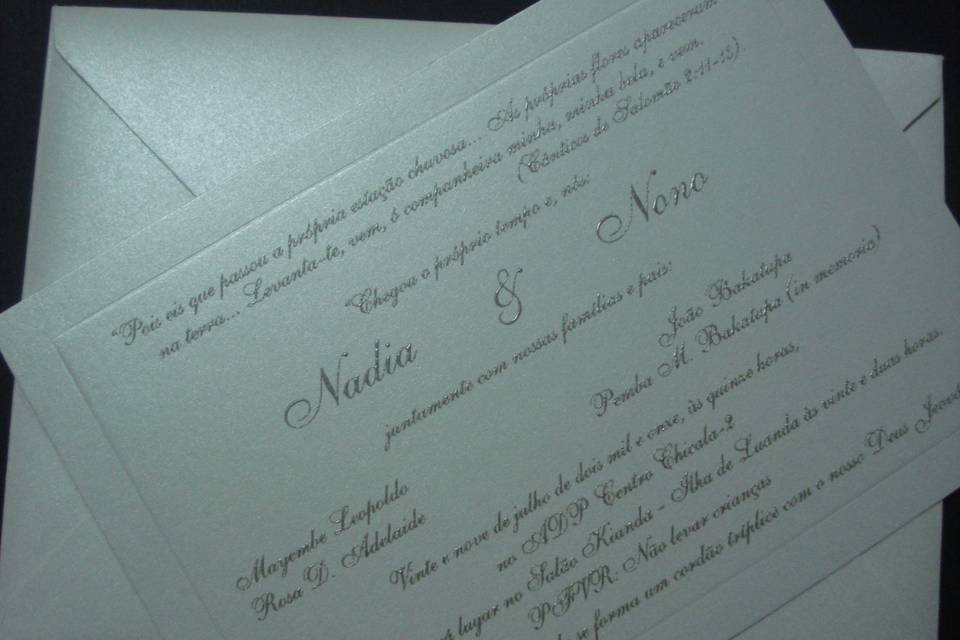 "Pois eis que passou a própria estação chuvosa... As próprias flores apareceram
na terra... Levanta-te, vem, ó companheira minha, minha bela, e vem.
(Cânticos de Salomão 2:11-13).
"Chegou o próprio tempo e, nós:
Nadia & Nono
juntamente com nossas famílias e pais:
Mayembe Leopoldo
Rosa D. Adelaide
João Bakatupa
Pemba M. Bakatupa (in memoria)
Vinte e nove de julho de dois mil e onze, às quinze horas,
no ADP Centro Chicala-2
lugar no Salão Kianda - Ilha de Luanda às vinte e duas horas.
PFVR: Não levar crianças
se forma um cordão tríplice com o nosso Deus